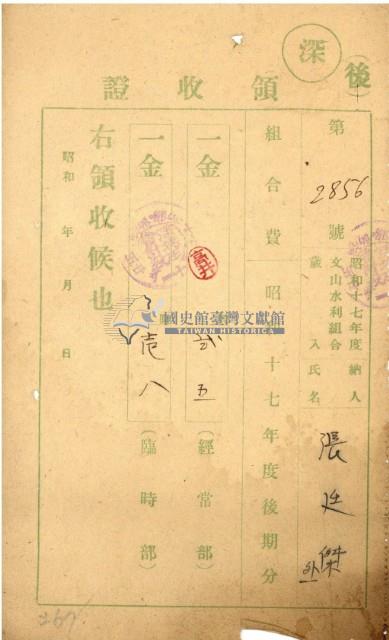 後
深
領收證
第2856號
昭和十七年度納人
文山水利組合
歲入氏名
張廷傑
外
組合費昭和十七年度後期分
一金 貳 五(經常部)
一金 壱 八(臨時部)
右領收候也
昭和 年 月 日
國史館臺灣文獻館
TAIWAN HISTORICA
267